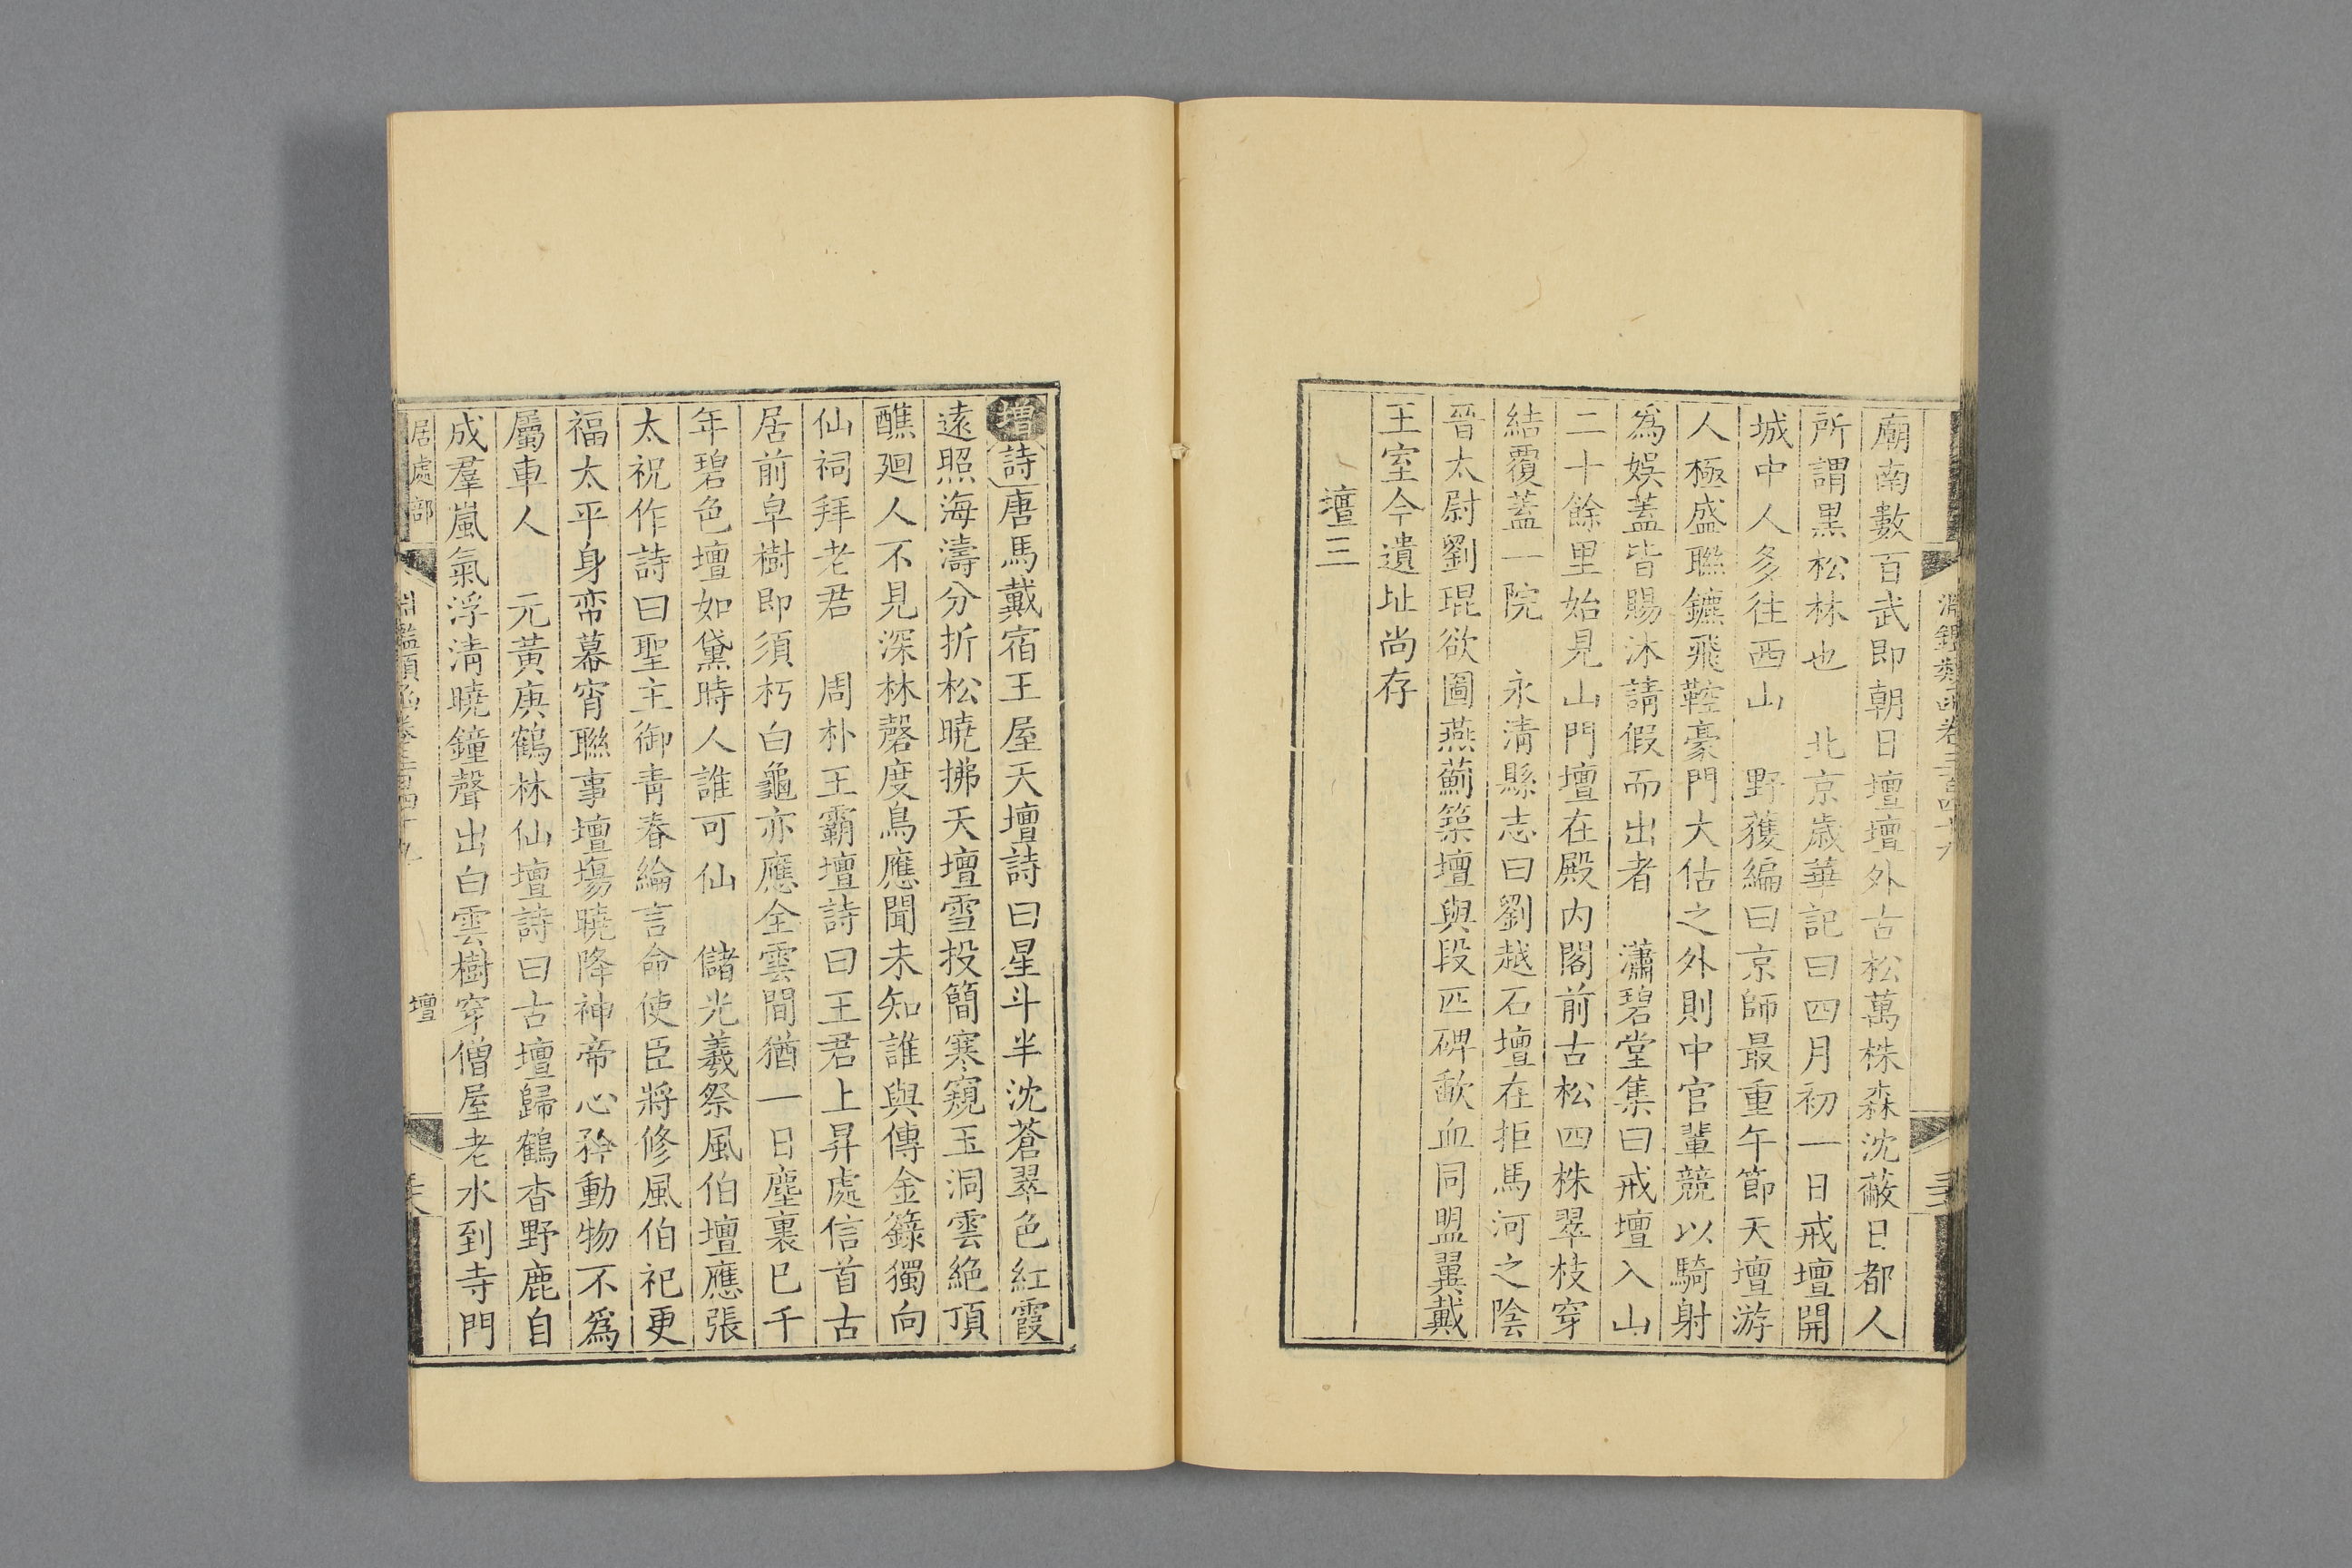 廟南數百武即朝日壇壇外古松萬株森沈蔽日都人
所謂黑松林也　北京歲華記曰四月初一日戒壇開
城中人多往西山　野獲編曰京師最重午節天壇游
人極盛聯鑣飛鞚豪門大估之外則中官輩競以騎射
爲娛蓋皆賜沐請假而出者　瀟碧堂集曰戒壇入山
二十餘里始見山門壇在殿内閣前古松四株翠枝穿
結覆蓋一院　永淸縣志曰劉越石壇在拒馬河之陰
晉太尉劉琨欲圖燕薊築壇與段匹磾歃血同盟翼戴
王室今遺址尚存
壇三
增詩唐馬戴宿王屋天壇詩曰星斗半沈蒼翠色紅霞
遠照海濤分折松曉拂天壇雪投簡寒窺玉洞雲絕頂
醮廻人不見深林磬度鳥應聞未知誰與傳金籙獨向
仙祠拜老君　周朴王霸壇詩曰王君上昇處信首古
居前皁樹即須朽白龜亦應全雲間猶一日塵裏巳千
年碧色壇如黛時人誰可仙　儲光羲祭風伯壇應張
太祝作詩曰聖主御青春綸言命使臣將修風伯祀更
福太平身帟幕宵聯事壇場曉降神帝心矜動物不爲
屬車人　元黃庚鶴林仙壇詩曰古壇歸鶴杳野鹿自
成羣嵐氣浮淸曉鐘聲出白雲樹穿僧屋老水到寺門
居處部
壇